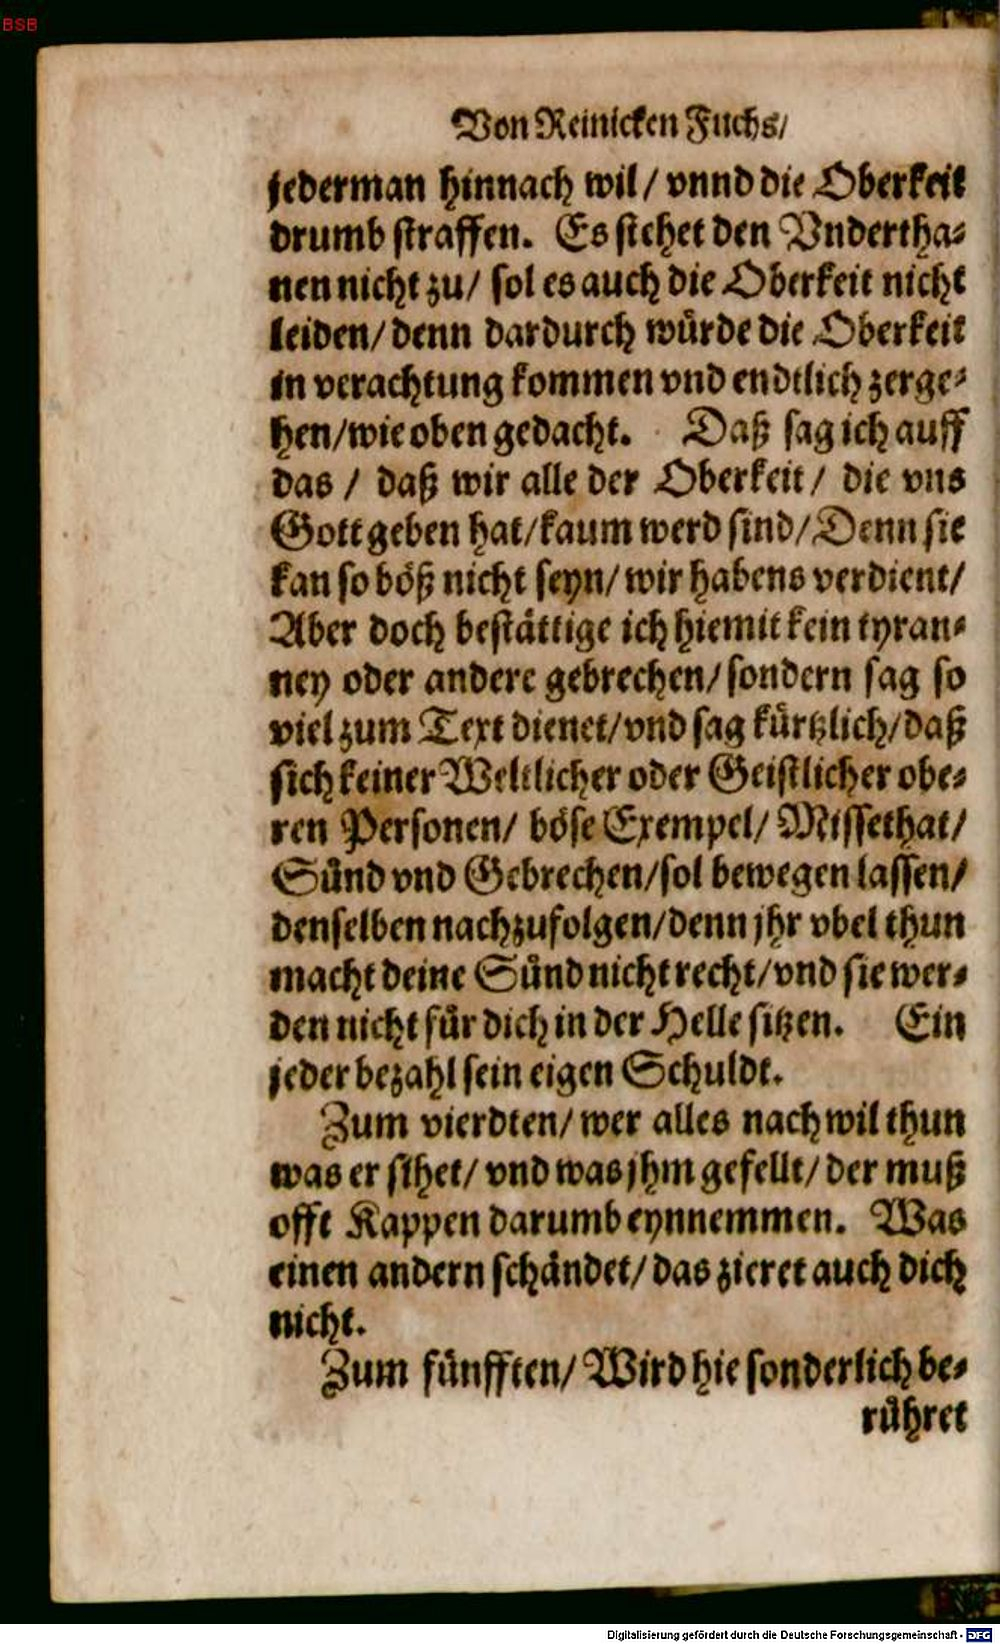 BSB
Von Reinicken Fuchs/
jederman hinnach wil/ vnnd die Oberkeit
drumb straffen. Es stehet den Vndertha⸗
nen nicht zu/ sol es auch die Oberkeit nicht
leiden/ denn dardurch würde die Oberkeit
in verachtung kommen vnd endtlich zerge⸗
hen/ wie oben gedacht. Daß sag ich auff
das / daß wir alle der Oberkeit/ die vns
Gott geben hat/ kaum werd sind/ Denn sie
kan so böß nicht seyn/ wir habens verdient/
Aber doch bestättige ich hiemit kein tyran⸗
ney oder andere gebrechen/ sondern sag so
viel zum Text dienet/ vnd sag kürtzlich/ daß
sich keiner Weltlicher oder Geistlicher obe⸗
ren Personen/ böse Exempel/ Missethat/
Sünd vnd Gebrechen/ sol bewegen lassen/
denselben nachzufolgen/ denn jhr vbel thun
macht deine Sünd nicht recht/ vnd sie wer⸗
den nicht für dich in der Helle sitzen. Ein
jeder bezahl sein eigen Schuldt.
Zum vierdten/ wer alles nach wil thun
was er sihet/ vnd was jhm gefellt/ der muß
offt Kappen darumb eynnemmen. Was
einen andern schändet/ das zieret auch dich
nicht.
Zum fünfften/ Wird hie sonderlich be⸗
rühret
Digitalisierung gefördert durch die Deutsche Forschungsgemeinschaft - DFG